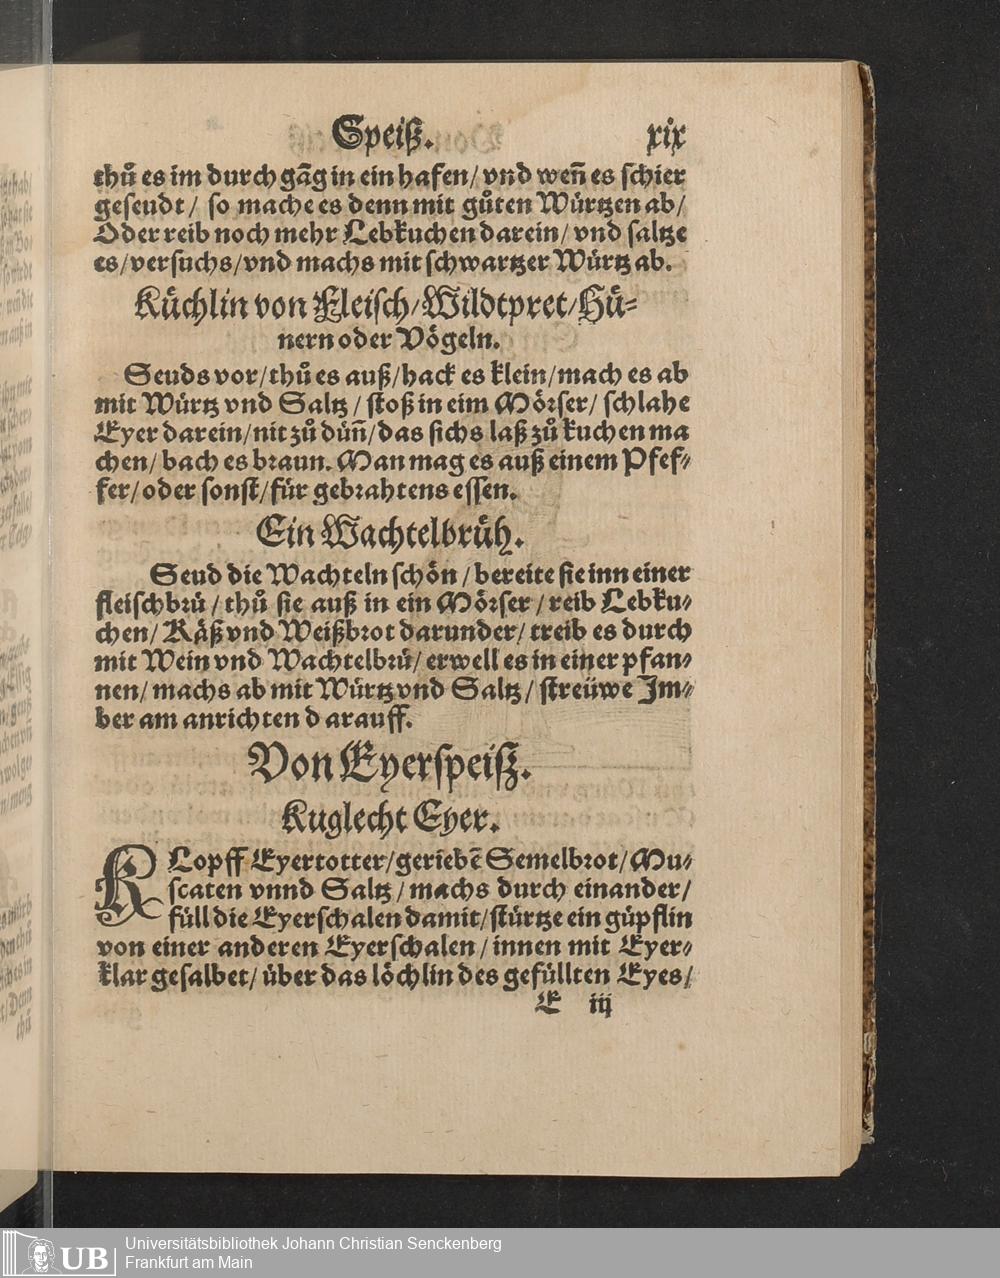 Speiß. xix
thuͦ es im durch gāg in ein hafen/ vnd weñ es schier
geseudt/ so mache es denn mit guͦten Wuͤrtzen ab/
Oder reib noch mehr Lebkuchen darein/ vnd saltze
es/ versuchs/ vnd machs mit schwartzer Wuͤrtz ab.
Kuͤchlin von Fleisch/ Wildtpret/ Huͤ-
nern oder Voͤgeln.
Seuds vor/ thuͦ es auß/ hack es klein/ mach es ab
mit Wuͤrtz vnd Saltz/ stoß in eim Moͤrser/ schlahe
Eyer darein/ nit zuͦ duͤñ/ das sichs laß zuͦ kuchen ma
chen/ bach es braun. Man mag es auß einem Pfef-
fer/ oder sonst/ fuͤr gebrahtens essen.
Ein Wachtelbruͤh.
Seud die Wachteln schoͤn/ bereite sie inn einer
fleischbruͤ/ thuͦ sie auß in ein Moͤrser/ reib Lebku-
chen/ Kaͤß vnd Weißbrot darunder/ treib es durch
mit Wein vnd Wachtelbruͤ/ erwell es in einer pfan-
nen/ machs ab mit Wuͤrtz vnd Saltz/ streüwe Im-
ber am anrichten darauff.
Von Eyerspeiß.
Kuglecht Eyer.
KLopff Eyertotter/ geriebē Semelbrot/ Mu-
scaten vnnd Saltz/ machs durch einander/
fuͤll die Eyerschalen damit/ stuͤrtze ein guͤpflin
von einer anderen Eyerschalen/ innen mit Eyer-
klar gesalbet/ uͤber das loͤchlin des gefuͤllten Eyes/
E iij
UB
Universitätsbibliothek Johann Christian Senckenberg
Frankfurt am Main